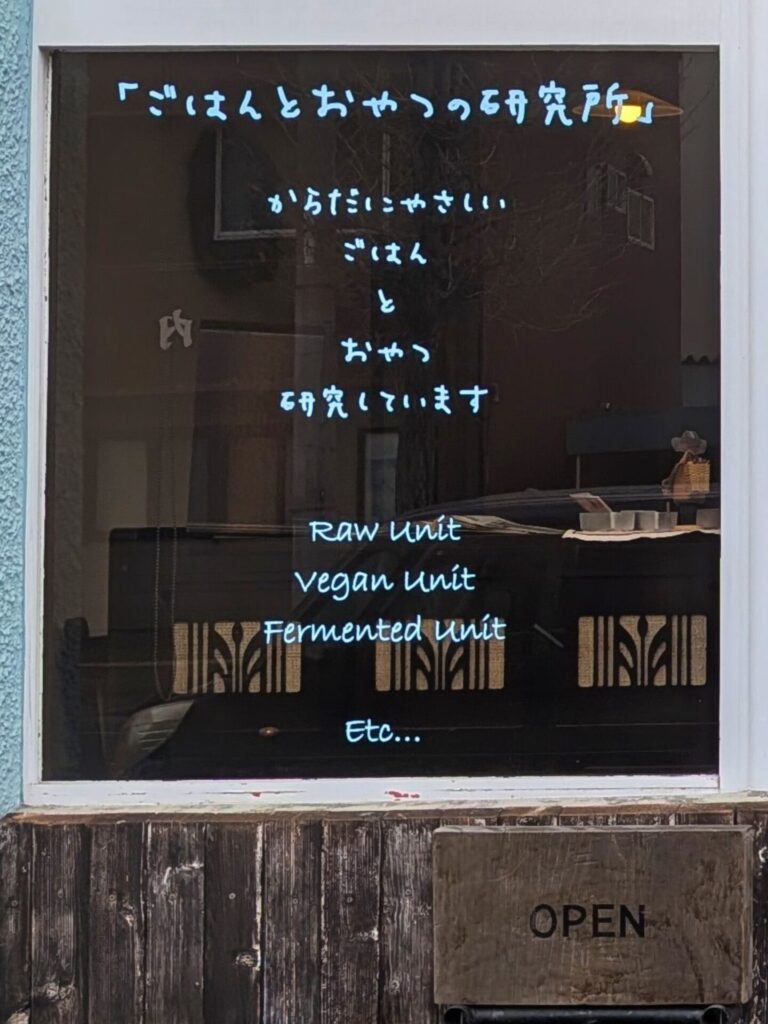 「ごはんとおやつの研究所」
からだにやさしい
ごはん
と
おやつ
研究しています
内
Raw Unit
Vegan Unit
Fermented Unit
Etc...
OPEN